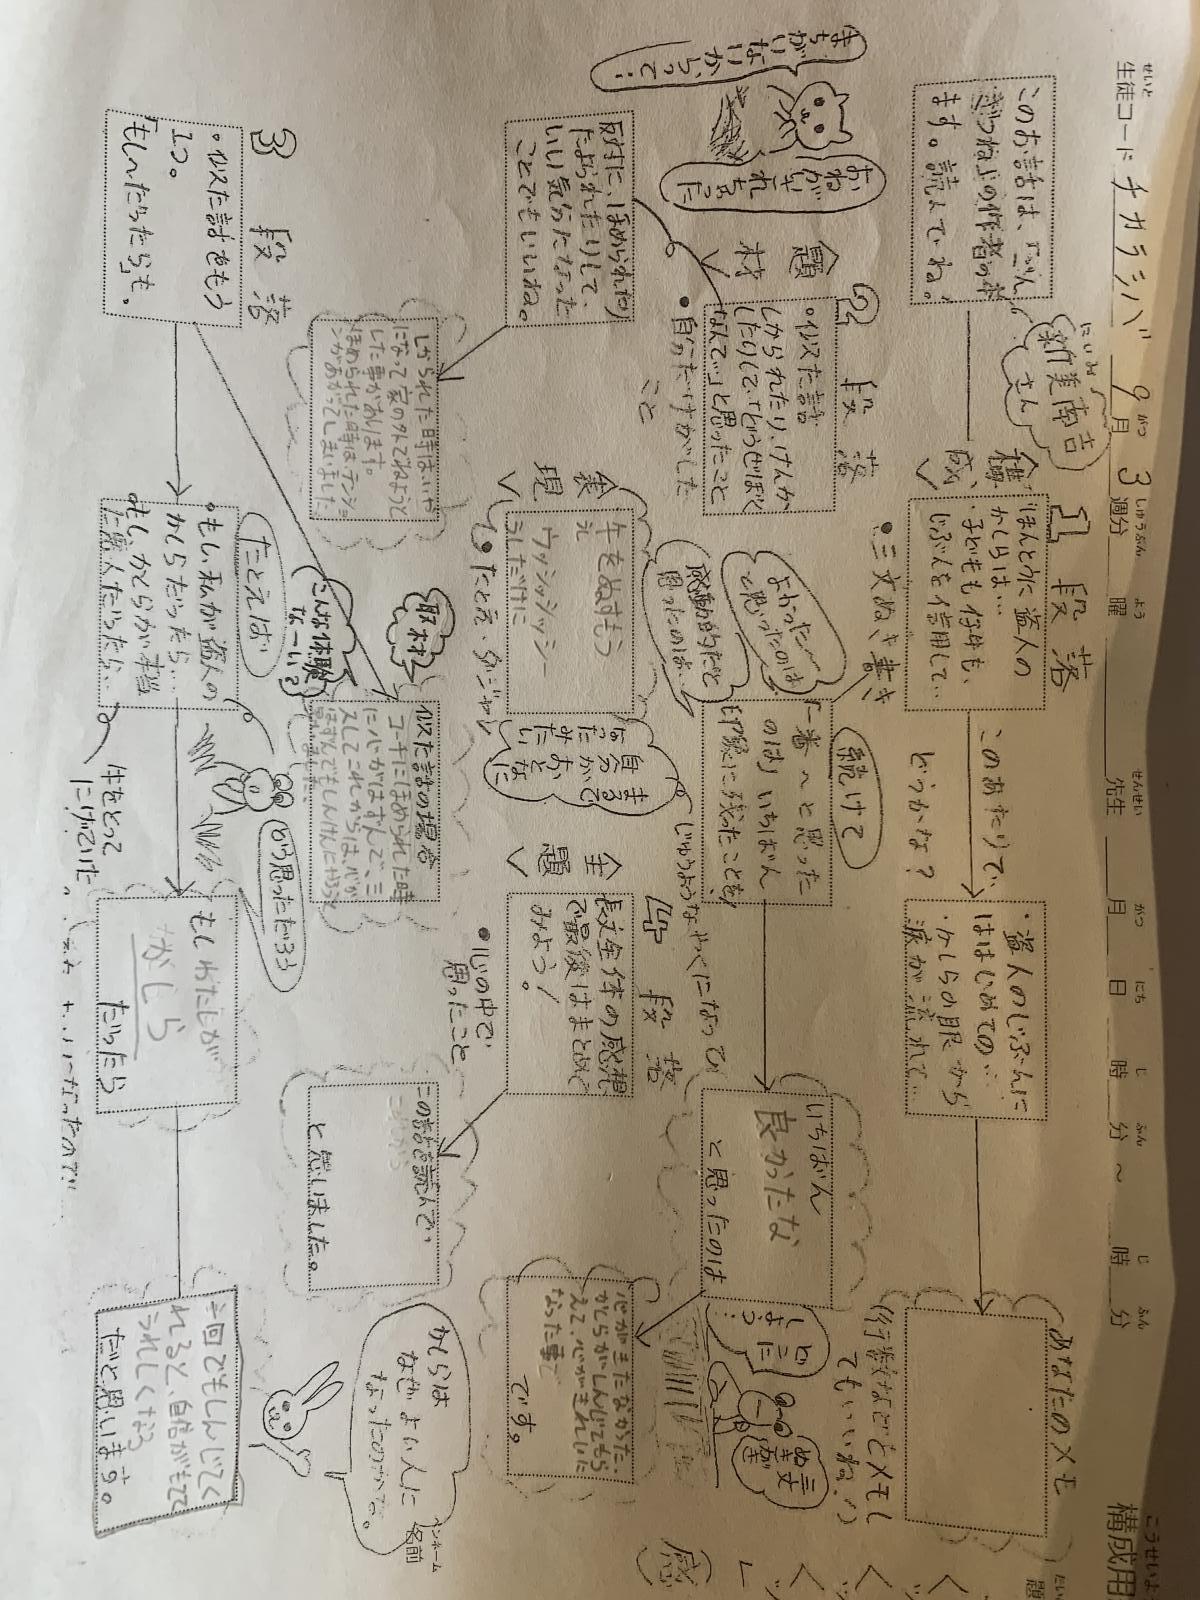 構成用
題
せいと
生徒コード チカラシバ 9月 3週分 曜 先生 月 日 時 分 ~ 時 分
このお話は、「ごん
ぎつね」の作者の本
ます。読んでね。
新美南吉
さん
にいみ
全構成
1段落
「ほんとうに盗人の
かしらは…
・子どもも仔牛も、
じぶんを信用して…
・三文ぬき書き
このあたりで、
どうかな?
・盗人のじぶんに
はじめての…
・かしらの眼から
涙が流れて…
あなたのメモ
(行数などをメモし
てもいいね!)
まちがいないからって…
おねがい
された
全題材
2段落
・似た話
しかられたり、けんか
したりして、「どうせぼく
なんて…」と思ったこと
・自分だけがした
こと
反対に、ほめられたり
たよられたりして、
いい気分になった
ことでもいいね。
続けて
「一番〜と思った
のは」いちばん
印象に残ったことを
よかった〜
と思ったのは
感動的だと
思ったのは…
いちばん
良かったな
と思ったのは
どこに
しよう?
三文
ぬき
書き
心がまだなかった、
かしらがしんじてもら
えて、心がきれいに
なった事
です。
しかられた時は、いや
になって家の外でねようと
した事があります。
ほめられた時は、テンショ
ンがあがってしまいました
表現
牛をぬすもう
え
ウッシッシッシー
うしだけに
・たとえ・ダジャレ
まるで
自分が
おとなに
なったみたい
じゅうようなやくになってい
全題
4段落
長文全体の感想
で最後はまとめて
みよう!
・心の中で
思ったこと
この話を読んで、
と感じました。
かしらは
なぜよい人に
なったのかな。
ペンネーム
名前
取材
こんな体験
な〜い?
似た話の場合
コーチにほめられた時
に心がはずんで、ミ
スしてこれからは、心が
はずんでもしんけんにやろうと
3段落
・似た話をもう
1つ。
「もし〜だったら」も。
たとえば
・もし私が盗人の
かしらだったら…
・もし、かしらが本当
の盗人だったら…
牛をとって
にげていた
どう思っただろう
もしわたしが
かしら
だったら
一回でもしんじてく
れると、自信がもてて
うれしくなる
だと思います。
感